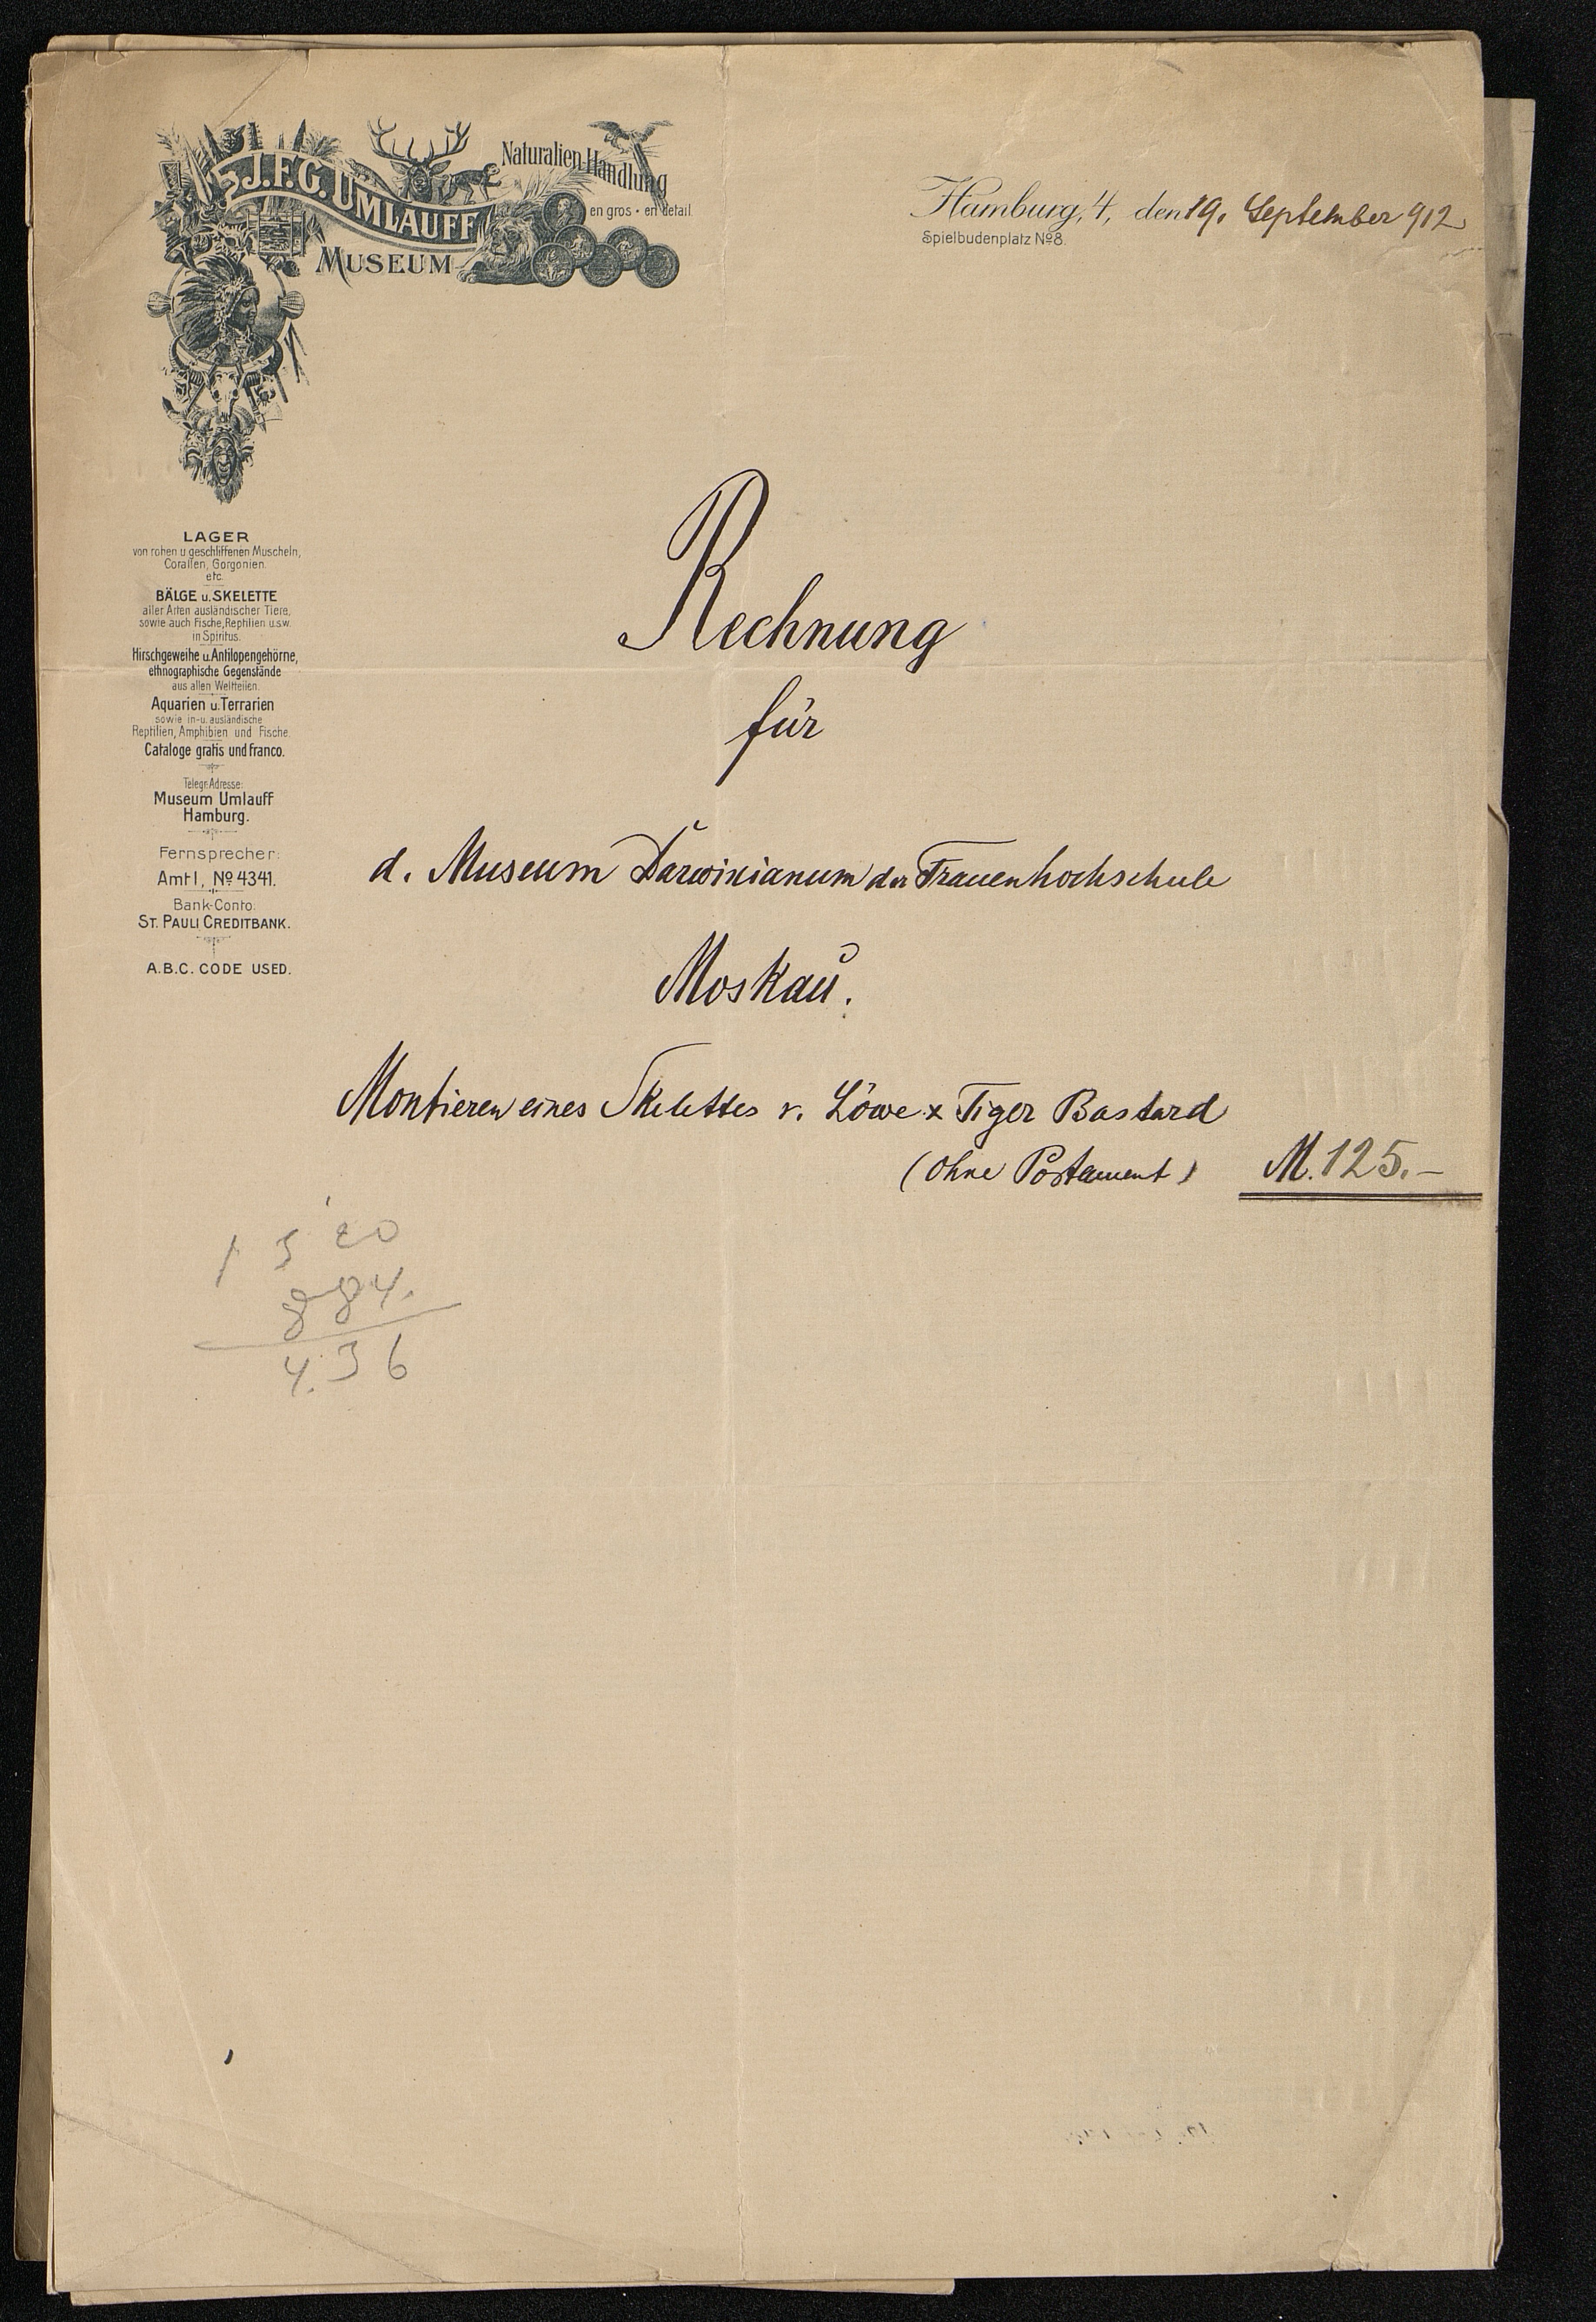 J.F.G. UMLAUFF
MUSEUM
Naturalien-Handlung
en gros • en detail
Hamburg, 4, den 19. September 912
Spielbudenplatz No 8.
LAGER
von rohen u geschliffenen Muscheln,
Corallen, Gorgonien.
etc.
BÄLGE u. SKELETTE
aller Arten ausländischer Tiere,
sowie auch Fische, Reptilien u.s.w.
in Spiritus.
Hirschgeweihe u. Antilopengehörne,
ethnographische Gegenstände
aus allen Weltteilen.
Aquarien u. Terrarien
sowie in- u. ausländische
Reptilien, Amphibien und Fische.
Cataloge gratis und franco.
Telegr. Adresse:
Museum Umlauff
Hamburg.
Fernsprecher:
Amt I, No 4341.
Bank-Conto:
ST. PAULI CREDITBANK.
A.B.C. CODE USED.
Rechnung
für
d. Museum Darwinianum der Frauenhochschule
Moskau.
Montieren eines Skelettes v. Löwe x Tiger Bastard
(ohne Postament) M. 125.–
1 3 20
884.
4.36